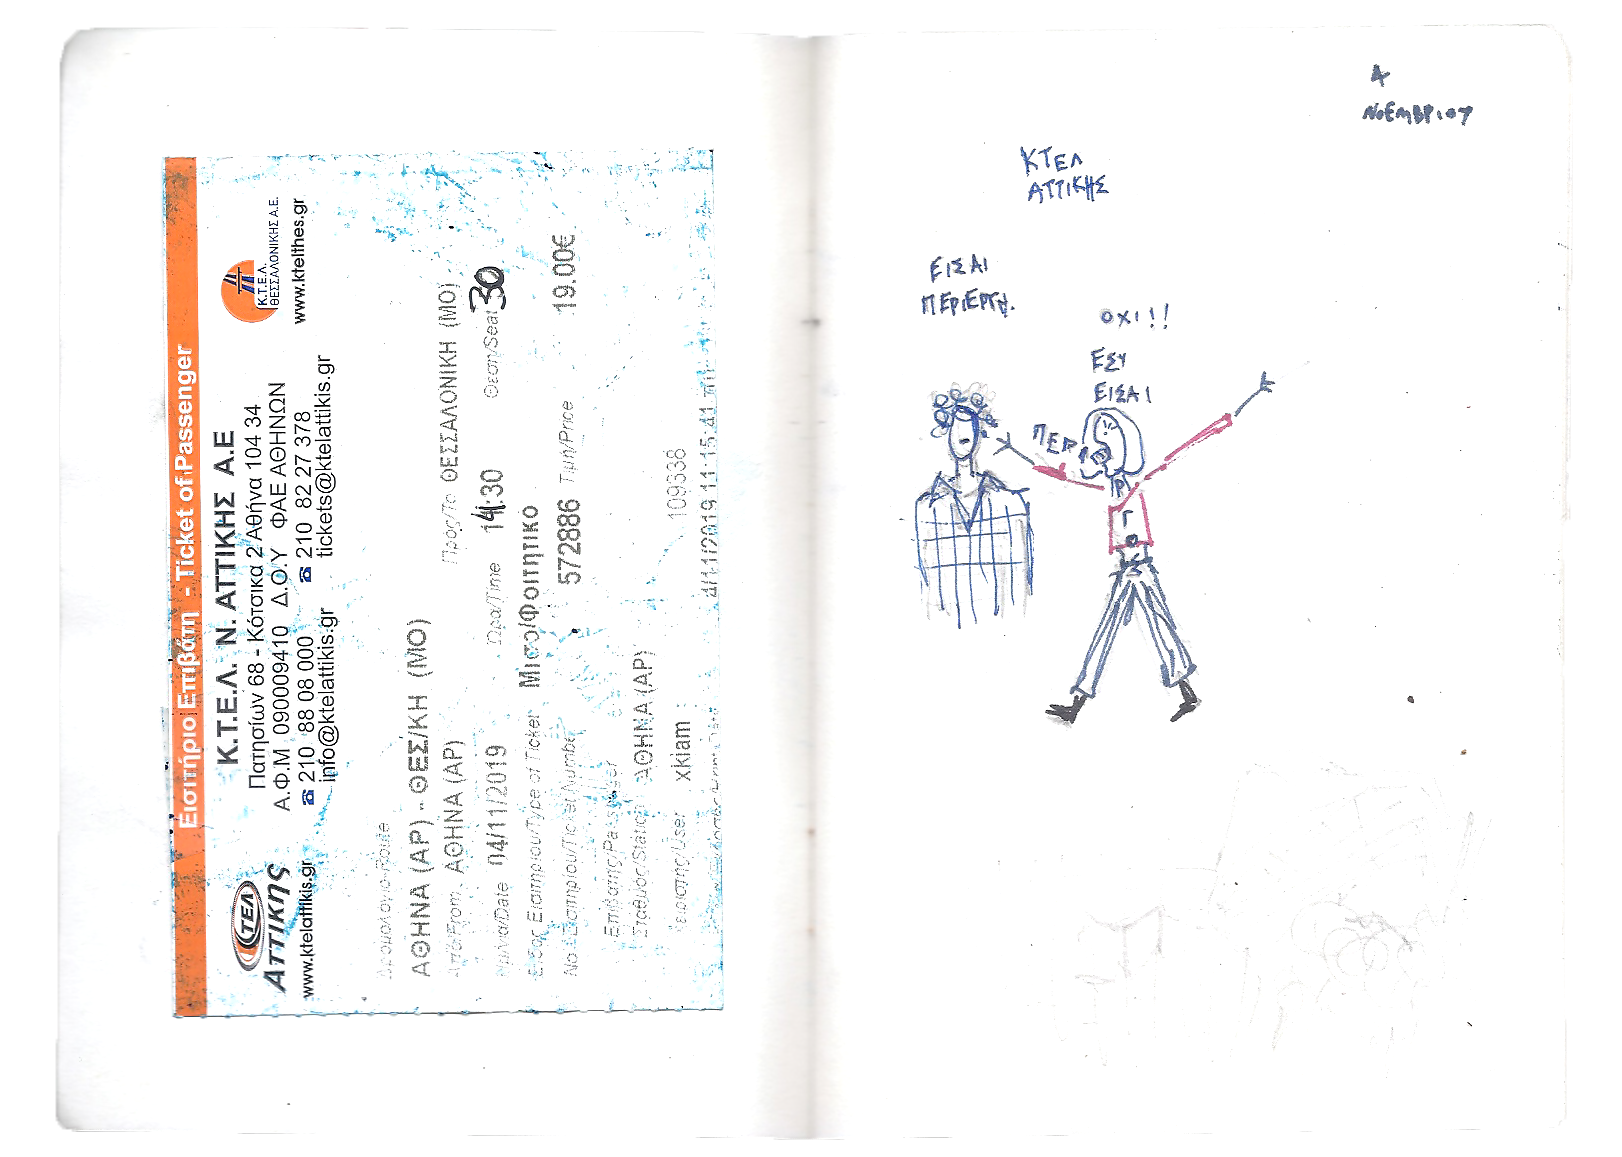 Εισιτήριο Επιβάτη - Ticket of Passenger
ΚΤΕΛ
Αττικής
www.ktelattikis.gr
Κ.Τ.Ε.Λ. Ν. ΑΤΤΙΚΗΣ Α.Ε
Πατησίων 68 - Κότσικα 2 Αθήνα 104 34
Α.Φ.Μ 090009410 Δ.Ο.Υ ΦΑΕ ΑΘΗΝΩΝ
☎ 210 88 08 000 ☎ 210 82 27 378
info@ktelattikis.gr tickets@ktelattikis.gr
Κ.Τ.Ε.Λ.
ΘΕΣΣΑΛΟΝΙΚΗΣ Α.Ε.
www.ktelthes.gr
Δρομολόγιο/Route
ΑΘΗΝΑ (ΑΡ) - ΘΕΣ/ΚΗ (ΜΟ)
Από/From ΑΘΗΝΑ (ΑΡ) Προς/To ΘΕΣΣΑΛΟΝΙΚΗ (ΜΟ)
Ημ/νία/Date 04/11/2019 Ώρα/Time 14:30 Θέση/Seat 30
Είδος Εισιτηρίου/Type of Ticket Μισο/Φοιτητικο
Νο Εισιτηρίου/Ticket Number 572886 Τιμή/Price 19.00€
Επιβάτης/Passenger
Σταθμός/Station ΑΘΗΝΑ (ΑΡ)
Χειριστής/User xklam 109338
4/11/2019 11:15:41 πμ
4
ΝΟΕΜΒΡΙΟΥ
ΚΤΕΛ
ΑΤΤΙΚΗΣ
ΕΙΣΑΙ
ΠΕΡΙΕΡΓΗ.
ΟΧΙ!!
ΕΣΥ
ΕΙΣΑΙ
ΠΕΡ
Ι
Ε
Ρ
Γ
Ο
Σ